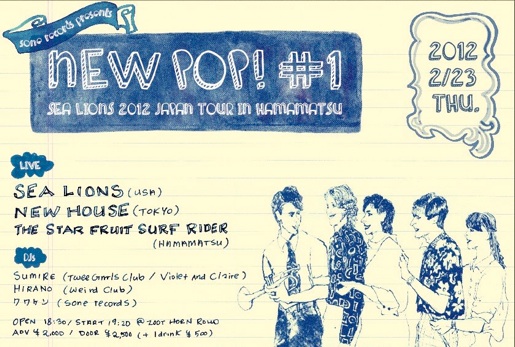 sone records presents
NEW POP! #1
SEA LIONS 2012 JAPAN TOUR IN HAMAMATSU
2012
2/23
THU.
LIVE
SEA LIONS (USA)
NEW HOUSE (TOKYO)
THE STAR FRUIT SURF RIDER
(HAMAMATSU)
DJs
SUMIRE (Twee Grrrls Club / Violet and Claire)
HIRANO (Weird Club)
ワケケン (Sone records)
OPEN 18:30 / START 19:20 @ ZOOT HORN ROLLO
ADV ¥2,000 / DOOR ¥2,500 (+ 1drink ¥500)